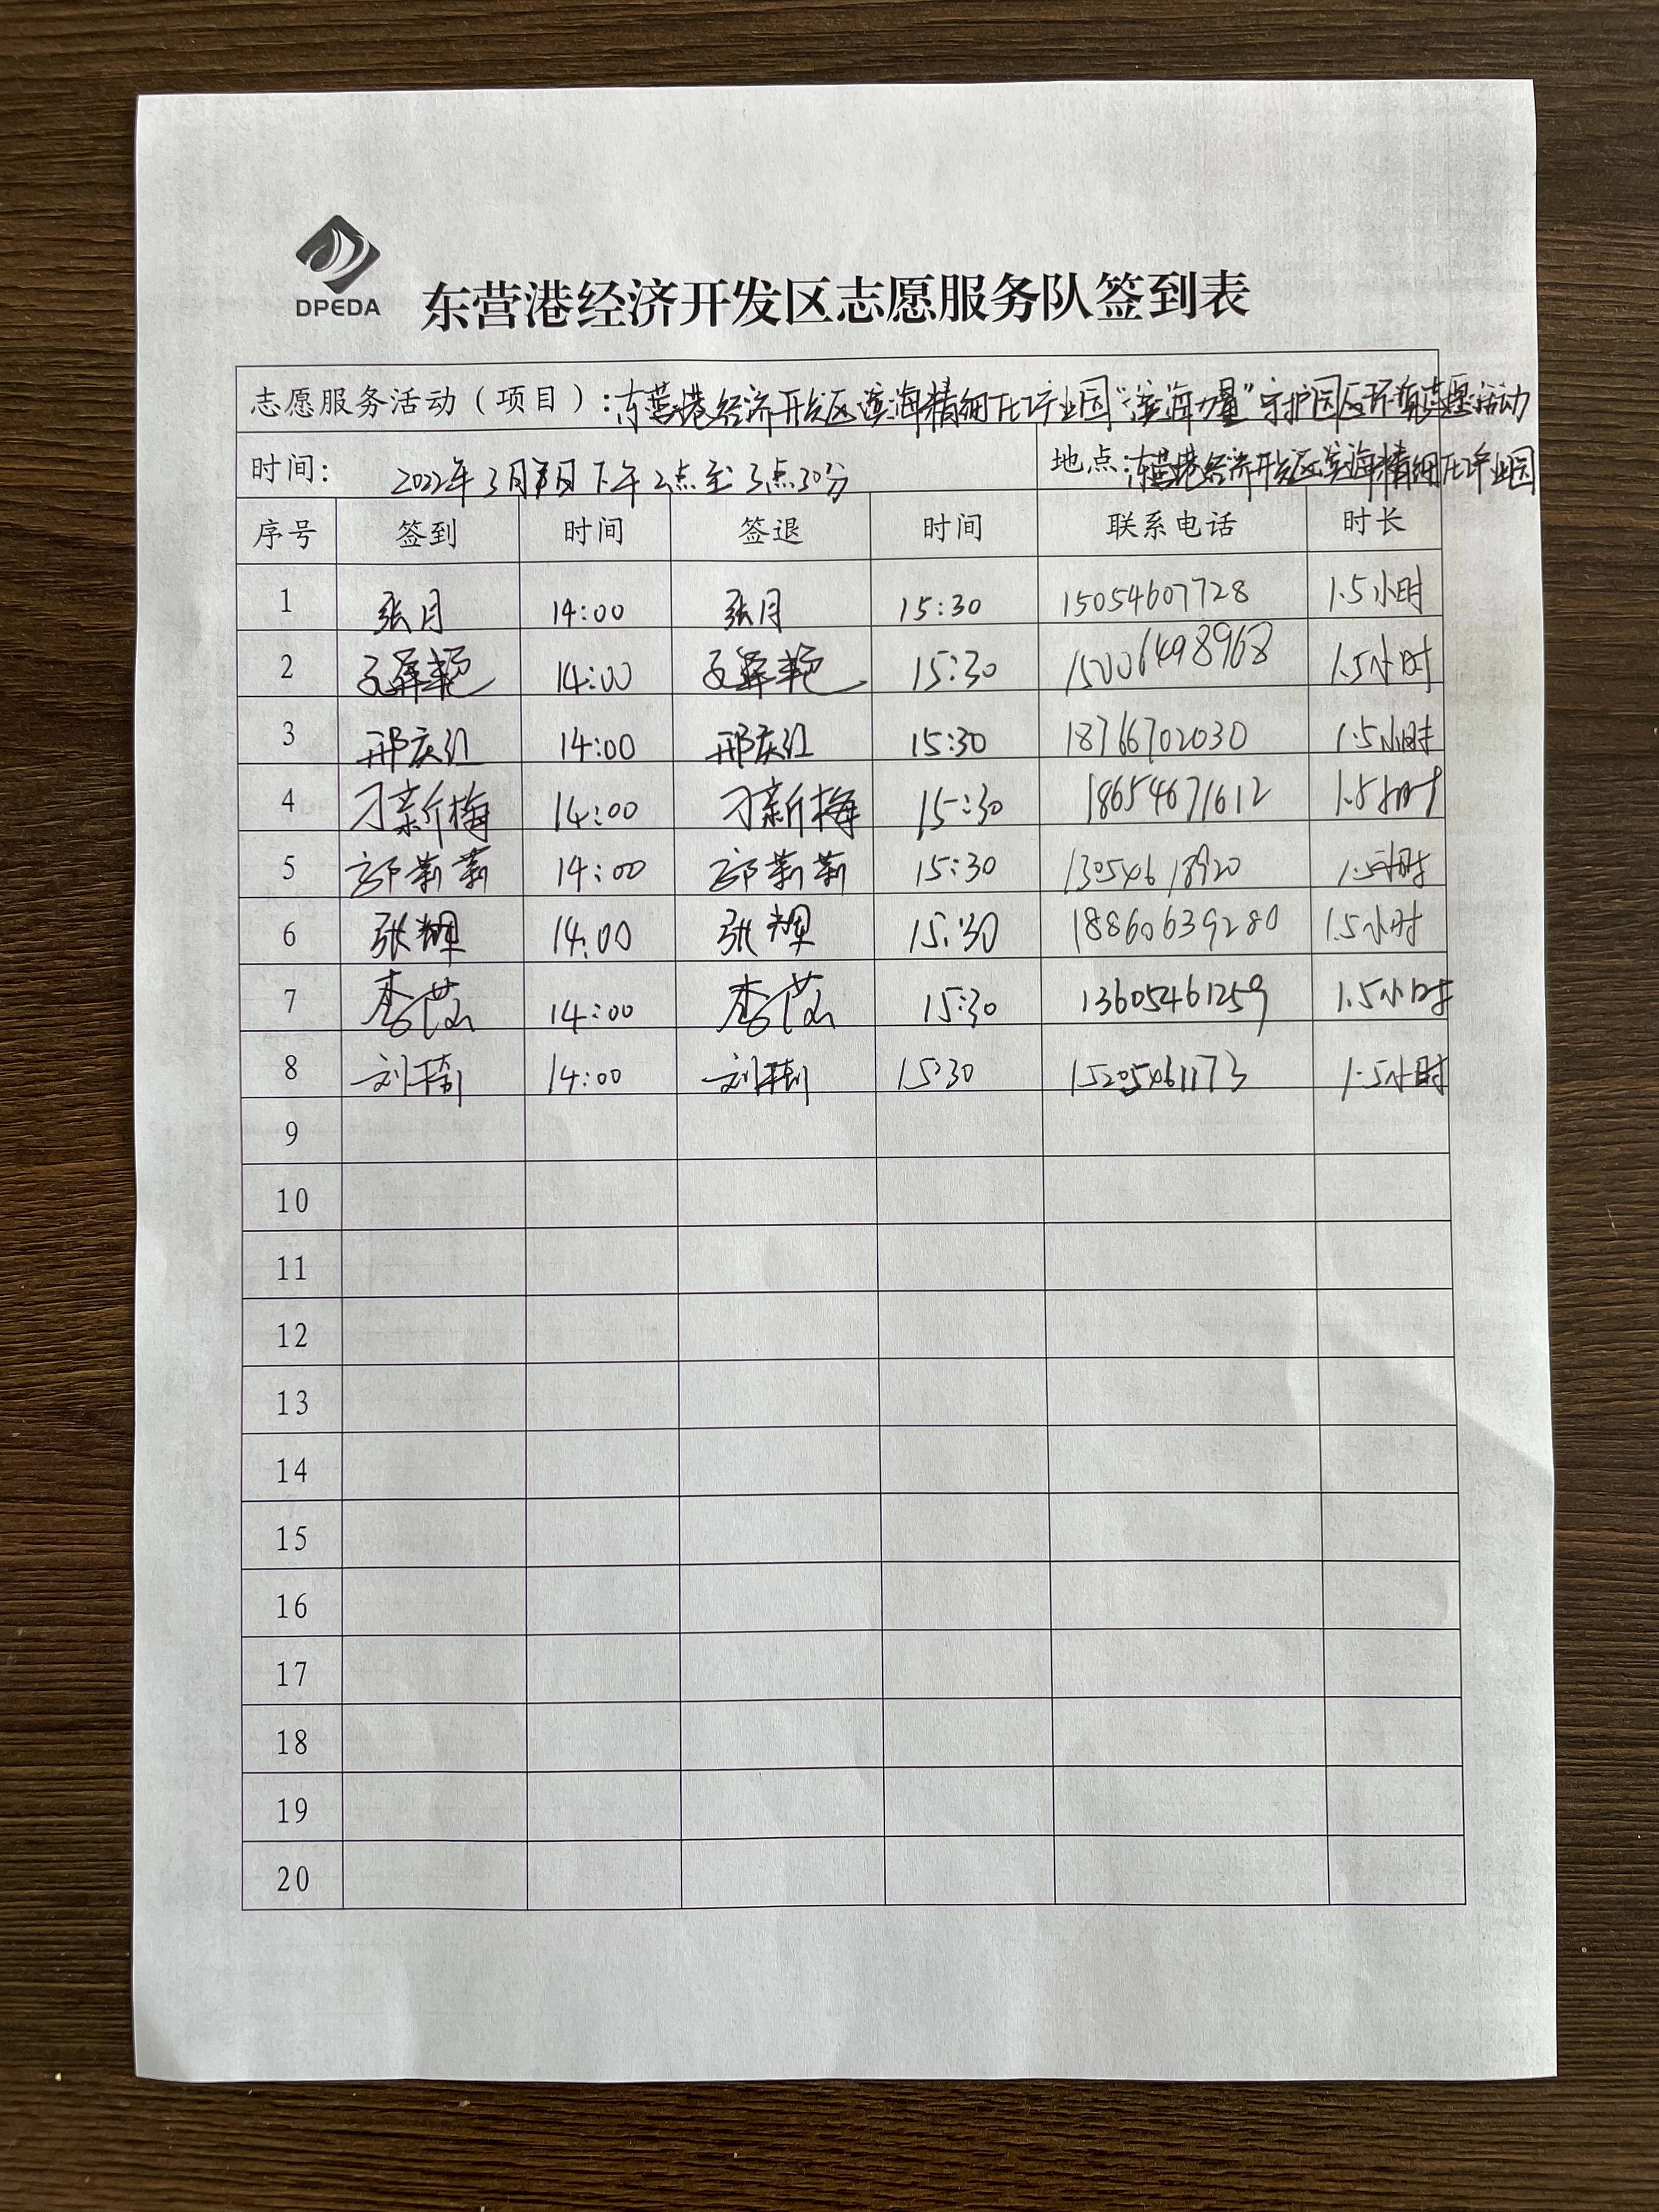 DPEDA
东营港经济开发区志愿服务队签到表
志愿服务活动（项目）:东营港经济开发区滨海精细化工产业园“滨海力量”守护园区环境志愿活动
时间: 2022年3月 日下午2点至3点30分 地点:东营港经济开发区滨海精细化工产业园
序号 签到 时间 签退 时间 联系电话 时长
1 张月 14:00 张月 15:30 15054607728 1.5小时
2 14:00 15:30 15006498968 1.5小时
3 邢庆红 14:00 邢庆红 15:30 18766702030 1.5小时
4 刁新梅 14:00 刁新梅 15:30 18654671612 1.5小时
5 郭莉莉 14:00 郭莉莉 15:30 13054618920 1.5小时
6 张辉 14:00 张辉 15:30 18860639280 1.5小时
7 李 14:00 李 15:30 13605461259 1.5小时
8 刘 14:00 刘 15:30 15205461173 1.5小时
9
10
11
12
13
14
15
16
17
18
19
20